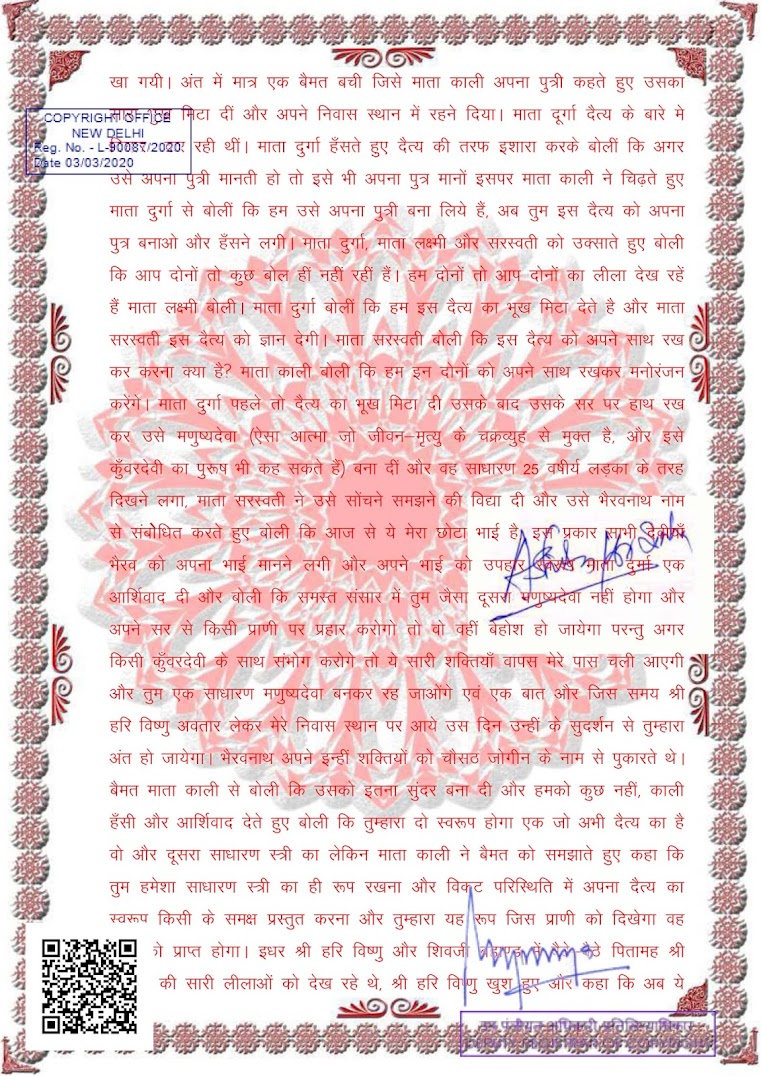 खा गयी। अंत में मात्र एक बैमत बची जिसे माता काली अपना पुत्री कहते हुए उसका
मिटा दीं और अपने निवास स्थान में रहने दिया। माता दूर्गा दैत्य के बारे मे
COPYRIGHT OFFICE
NEW DELHI
Reg. No. - L-90087/2020
Date 03/03/2020
रही थीं। माता दुर्गा हँसते हुए दैत्य की तरफ इशारा करके बोलीं कि अगर
उसे अपना पुत्री मानती हो तो इसे भी अपना पुत्र मानों इसपर माता काली ने चिढ़ते हुए
माता दुर्गा से बोलीं कि हम उसे अपना पुत्री बना लिये हैं, अब तुम इस दैत्य को अपना
पुत्र बनाओ और हँसने लगी। माता दुर्गा, माता लक्ष्मी और सरस्वती को उक्साते हुए बोली
कि आप दोनों तो कुछ बोल हीं नहीं रहीं हैं। हम दोनों तो आप दोनों का लीला देख रहें
हैं माता लक्ष्मी बोली। माता दुर्गा बोलीं कि हम इस दैत्य का भूख मिटा देते है और माता
सरस्वती इस दैत्य को ज्ञान देगी। माता सरस्वती बोली कि इस दैत्य को अपने साथ रख
कर करना क्या है? माता काली बोली कि हम इन दोनों को अपने साथ रखकर मनोरंजन
करेंगे। माता दुर्गा पहले तो दैत्य का भूख मिटा दी उसके बाद उसके सर पर हाथ रख
कर उसे मणुष्यदेवा (ऐसा आत्मा जो जीवन-मृत्यु के चक्रव्युह से मुक्त है, और इसे
कुँवरदेवी का पुरूष भी कह सकते हैं) बना दीं ओर वह साधारण 25 वषीर्य लड़का के तरह
दिखने लगा, माता सरस्वती ने उसे सोंचने समझने की विद्या दी और उसे भैरवनाथ नाम
से संबोधित करते हुए बोली कि आज से ये मेरा छोटा भाई है, इस प्रकार सभी देवीयाँ
भैरव को अपना भाई मानने लगी और अपने भाई को उपहार स्वरुप माता दुर्गा एक
आर्शिवाद दी ओर बोली कि समस्त संसार में तुम जैसा दूसरा मणुष्यदेवा नहीं होगा और
अपने सर से किसी प्राणी पर प्रहार करोगो तो वो वहीं बेहोश हो जायेगा परन्तु अगर
किसी कुँवरदेवी के साथ संभोग करोगे तो ये सारी शक्तियाँ वापस मेरे पास चली आएगी
और तुम एक साधारण मणुष्यदेवा बनकर रह जाओंगे एवं एक बात और जिस समय श्री
हरि विष्णु अवतार लेकर मेरे निवास स्थान पर आये उस दिन उन्हीं के सुदर्शन से तुम्हारा
अंत हो जायेगा। भैरवनाथ अपने इन्हीं शक्तियों को चौसठ जोगीन के नाम से पुकारते थे।
बैमत माता काली से बोली कि उसको इतना सुंदर बना दी और हमको कुछ नहीं, काली
हँसी और आर्शिवाद देते हुए बोली कि तुम्हारा दो स्वरूप होगा एक जो अभी दैत्य का है
वो और दूसरा साधारण स्त्री का लेकिन माता काली ने बैमत को समझाते हुए कहा कि
तुम हमेशा साधारण स्त्री का ही रूप रखना और विकट परिस्थिति में अपना दैत्य का
स्वरूप किसी के समक्ष प्रस्तुत करना और तुम्हारा यह रूप जिस प्राणी को दिखेगा वह
को प्राप्त होगा। इधर श्री हरि विष्णु और शिवजी ब्रहाण्ड में बैठे बैठे पितामह श्री
की सारी लीलाओं को देख रहे थे, श्री हरि विष्णु खुश हुए और कहा कि अब ये
उप पंजीयन अधिकारी प्रतिलिप्याधिकार
DEPUTY REGISTRAR OF COPYRIGHTS